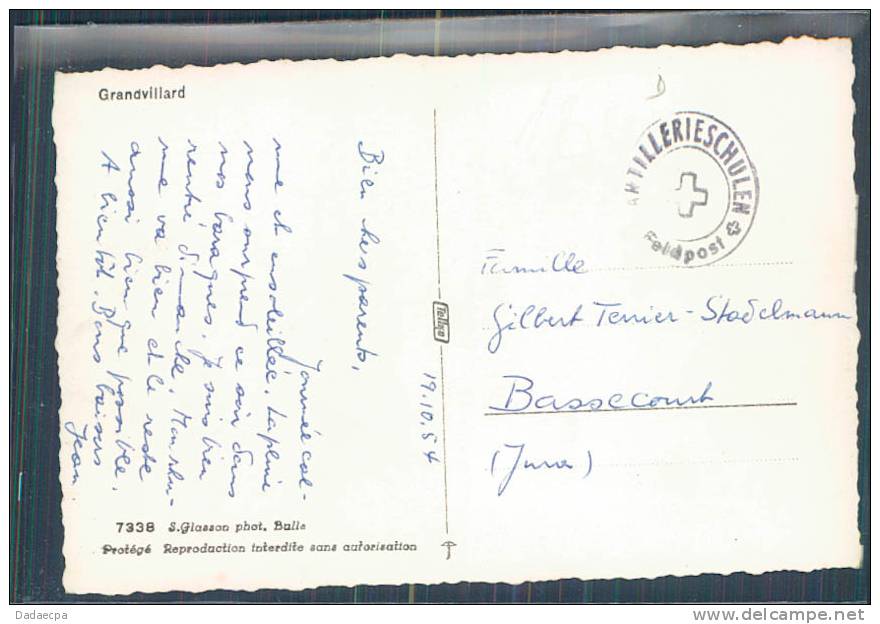 Grandvillard
19.10.54
Bien chers parents,
Journée cal-
me et ensoleillée. La pluie
nous surprend ce soir dans
nos baraques. Je suis bien
rentré dimanche. Mon rhu-
me va bien et le reste
aussi bien que possible.
A bientôt. Bons baisers
Jean
7338 S.Glasson phot. Bulle
Protégé Reproduction interdite sans autorisation
Tellko
ARTILLERIESCHULEN
Feldpost
Famille
Gilbert Terrier-Stadelmann
Bassecourt
(Jura)
Dadaecpa
www.delcampe.net